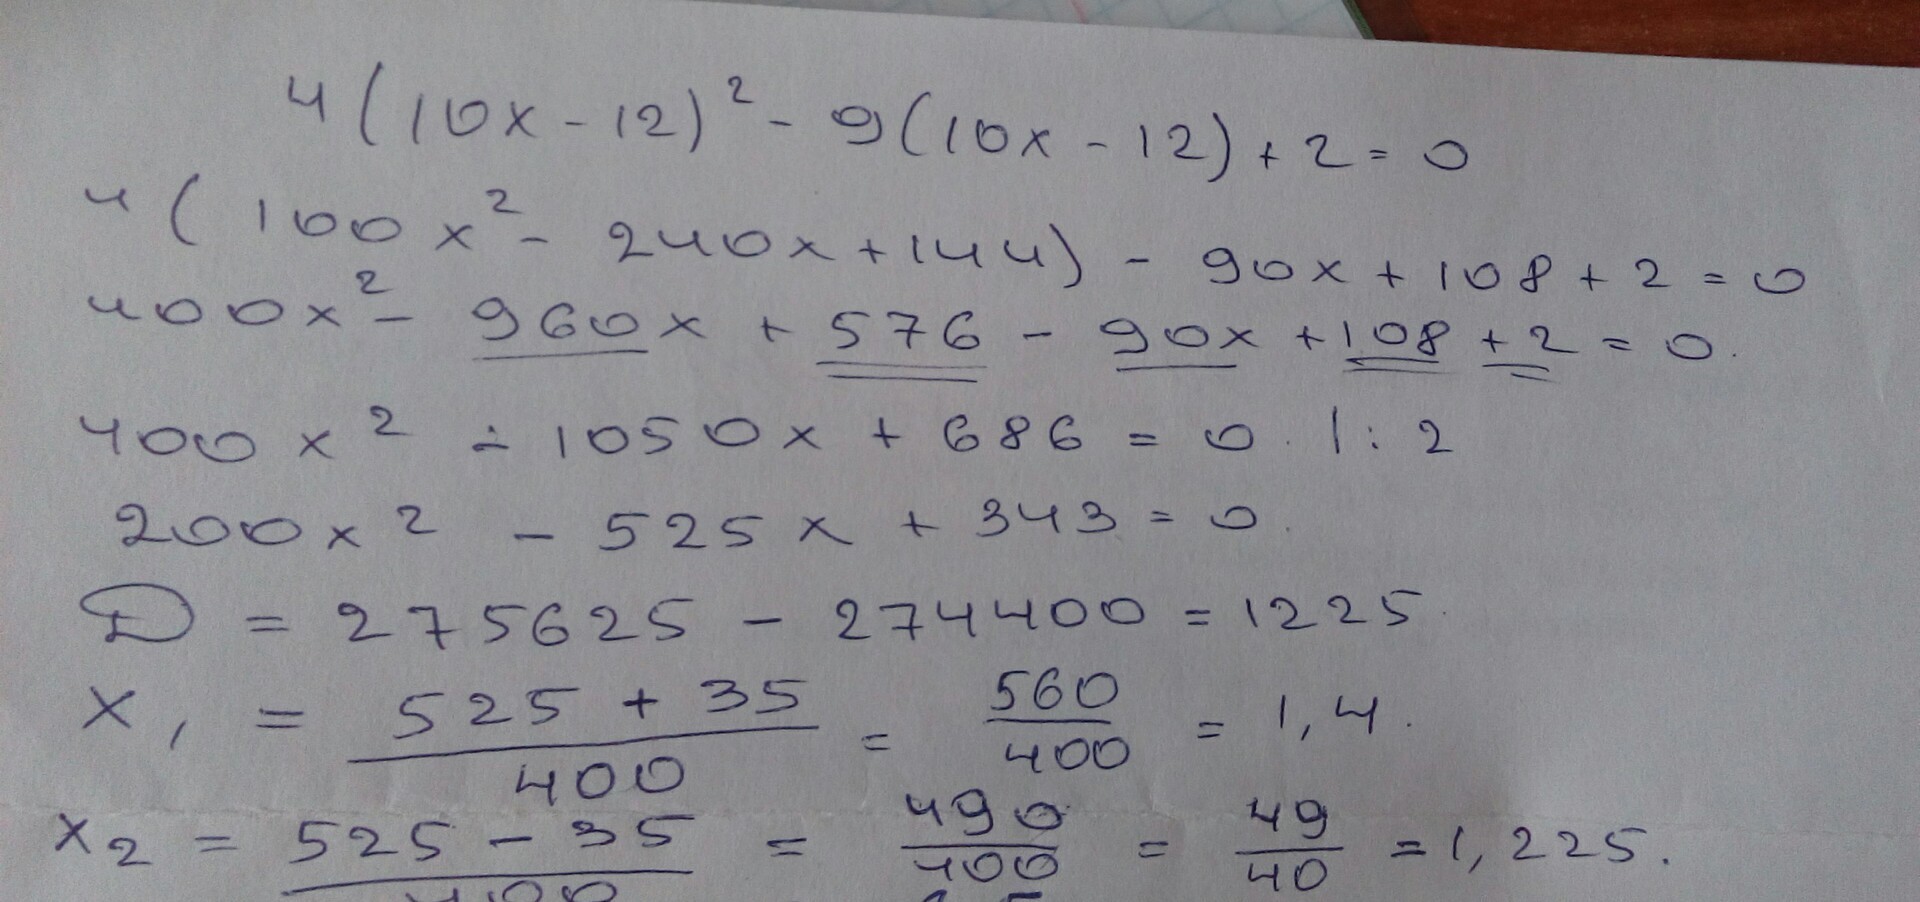 4(10x - 12)² - 9(10x - 12) + 2 = 0
4(100x² - 240x + 144) - 90x + 108 + 2 = 0
400x² - 960x + 576 - 90x + 108 + 2 = 0.
400x² - 1050x + 686 = 0. | : 2
200x² - 525x + 343 = 0.
D = 275625 - 274400 = 1225.
x₁ = (525 + 35)/400 = 560/400 = 1,4.
x₂ = (525 - 35)/400 = 490/400 = 49/40 = 1,225.